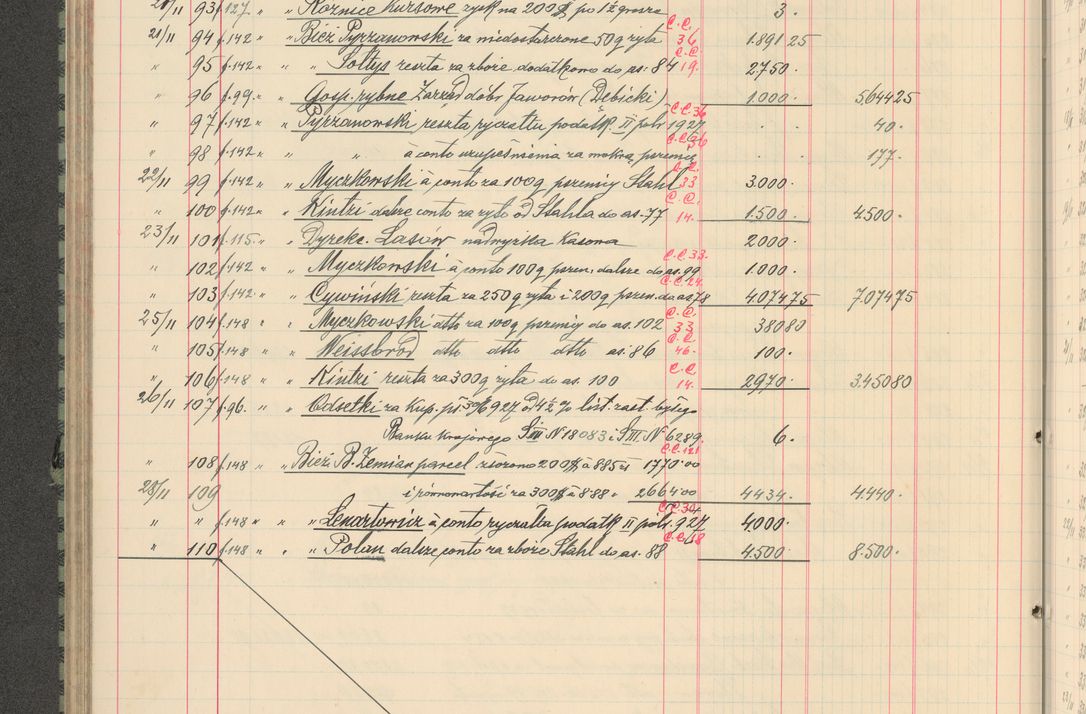 21/11 93 f.127. " " Różnice Kursowe zysk na 200$ po 1½ grosza 3.
21/11 94 f.142 " " Bież. Pyrzanowski za niedostarczone 50q żyta C.C. 36 1.891 25
" 95 f.142 " " " Sołtys reszta za zboże dodatkowo do as. 84 C.C. 19. 2.750.
" 96 f.99. " " Gosp. rybne Zarząd dóbr Jaworów (Dębicki) 1.000. 5.644 25
" 97 f.142 " " Pyrzanowski reszta ryczałtu podatk. II półr. 1927 C.C. 36 . . 40.
" 98 f.142 " " " à conto uzupełnienia za mokrą pszenicę C.C. 36 . . 177.
22/11 99 f.142 " " Myczkowski à conto za 100q pszenicy Stahl C.C. 33 3.000.
" 100 f.142 " " Kintzi dalsze conto za żyto od Stahla do as. 77 C.C. 14. 1.500. 4.500.
23/11 101 f.115. " " Dyrekc. Lasów nadwyżka Kasowa 2000.
" 102 f.142 " " Myczkowski à conto 100q pszen. dalsze do as. 99 C.C. 33. 1.000.
" 103 f.142 " " Cywiński reszta za 250q żyta i 200q pszen. do as 78 C.C. 24. 4.074 75 7.074 75
25/11 104 f.148 " " Myczkowski dtto za 100q pszenicy do as. 102 C.C. 33 380 80
" 105 f.148 " " Weissbrod dtto dtto dtto as. 86 C.C. 46. 100.
" 106 f.148 " " Kintzi reszta za 300q żyta do as. 100 C.C. 14. 2970. 3.450 80
26/11 107 f.96. " " Odsetki za Kup. pł. 30/6 927 od 4½% list. zast. byłego
Banku Krajowego S. III N 18083 i S. III. N 6289. 6.
" 108 f.148 " " Bież. B. Ziemian parcel. złożono 200$ à 885 zł 1770.00 C.C. 121
28/11 109 i równowartość za 300$ à 888 " 2664.00 4434. 4.440.
" " f.148 " " Lekartowicz à conto ryczałtu podatk. II półr. 927 C.C. 34. 4000.
" 110 f.148 " " " Polan dalsze conto za zboże Stahl do as. 88 C.C. 48 4.500. 8.500.